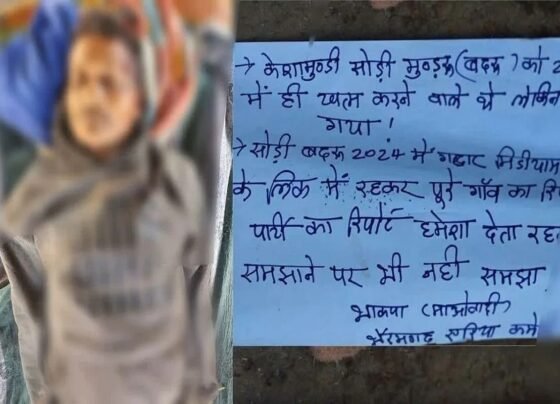 → केशामुण्डी सोड़ी मुण्ड्रा (बदरू) को 2
में ही खत्म करने वाले थे लेकिन
गया !
→ सोड़ी बदरू 2024 में गद्दार
के लिंक में रहकर पूरे गाँव का रि
पार्टी का रिपोर्ट हमेशा देता रहा
समझाने पर भी नही समझा
भाकपा (माओवादी)
भैरमगढ़ एरिया कमे